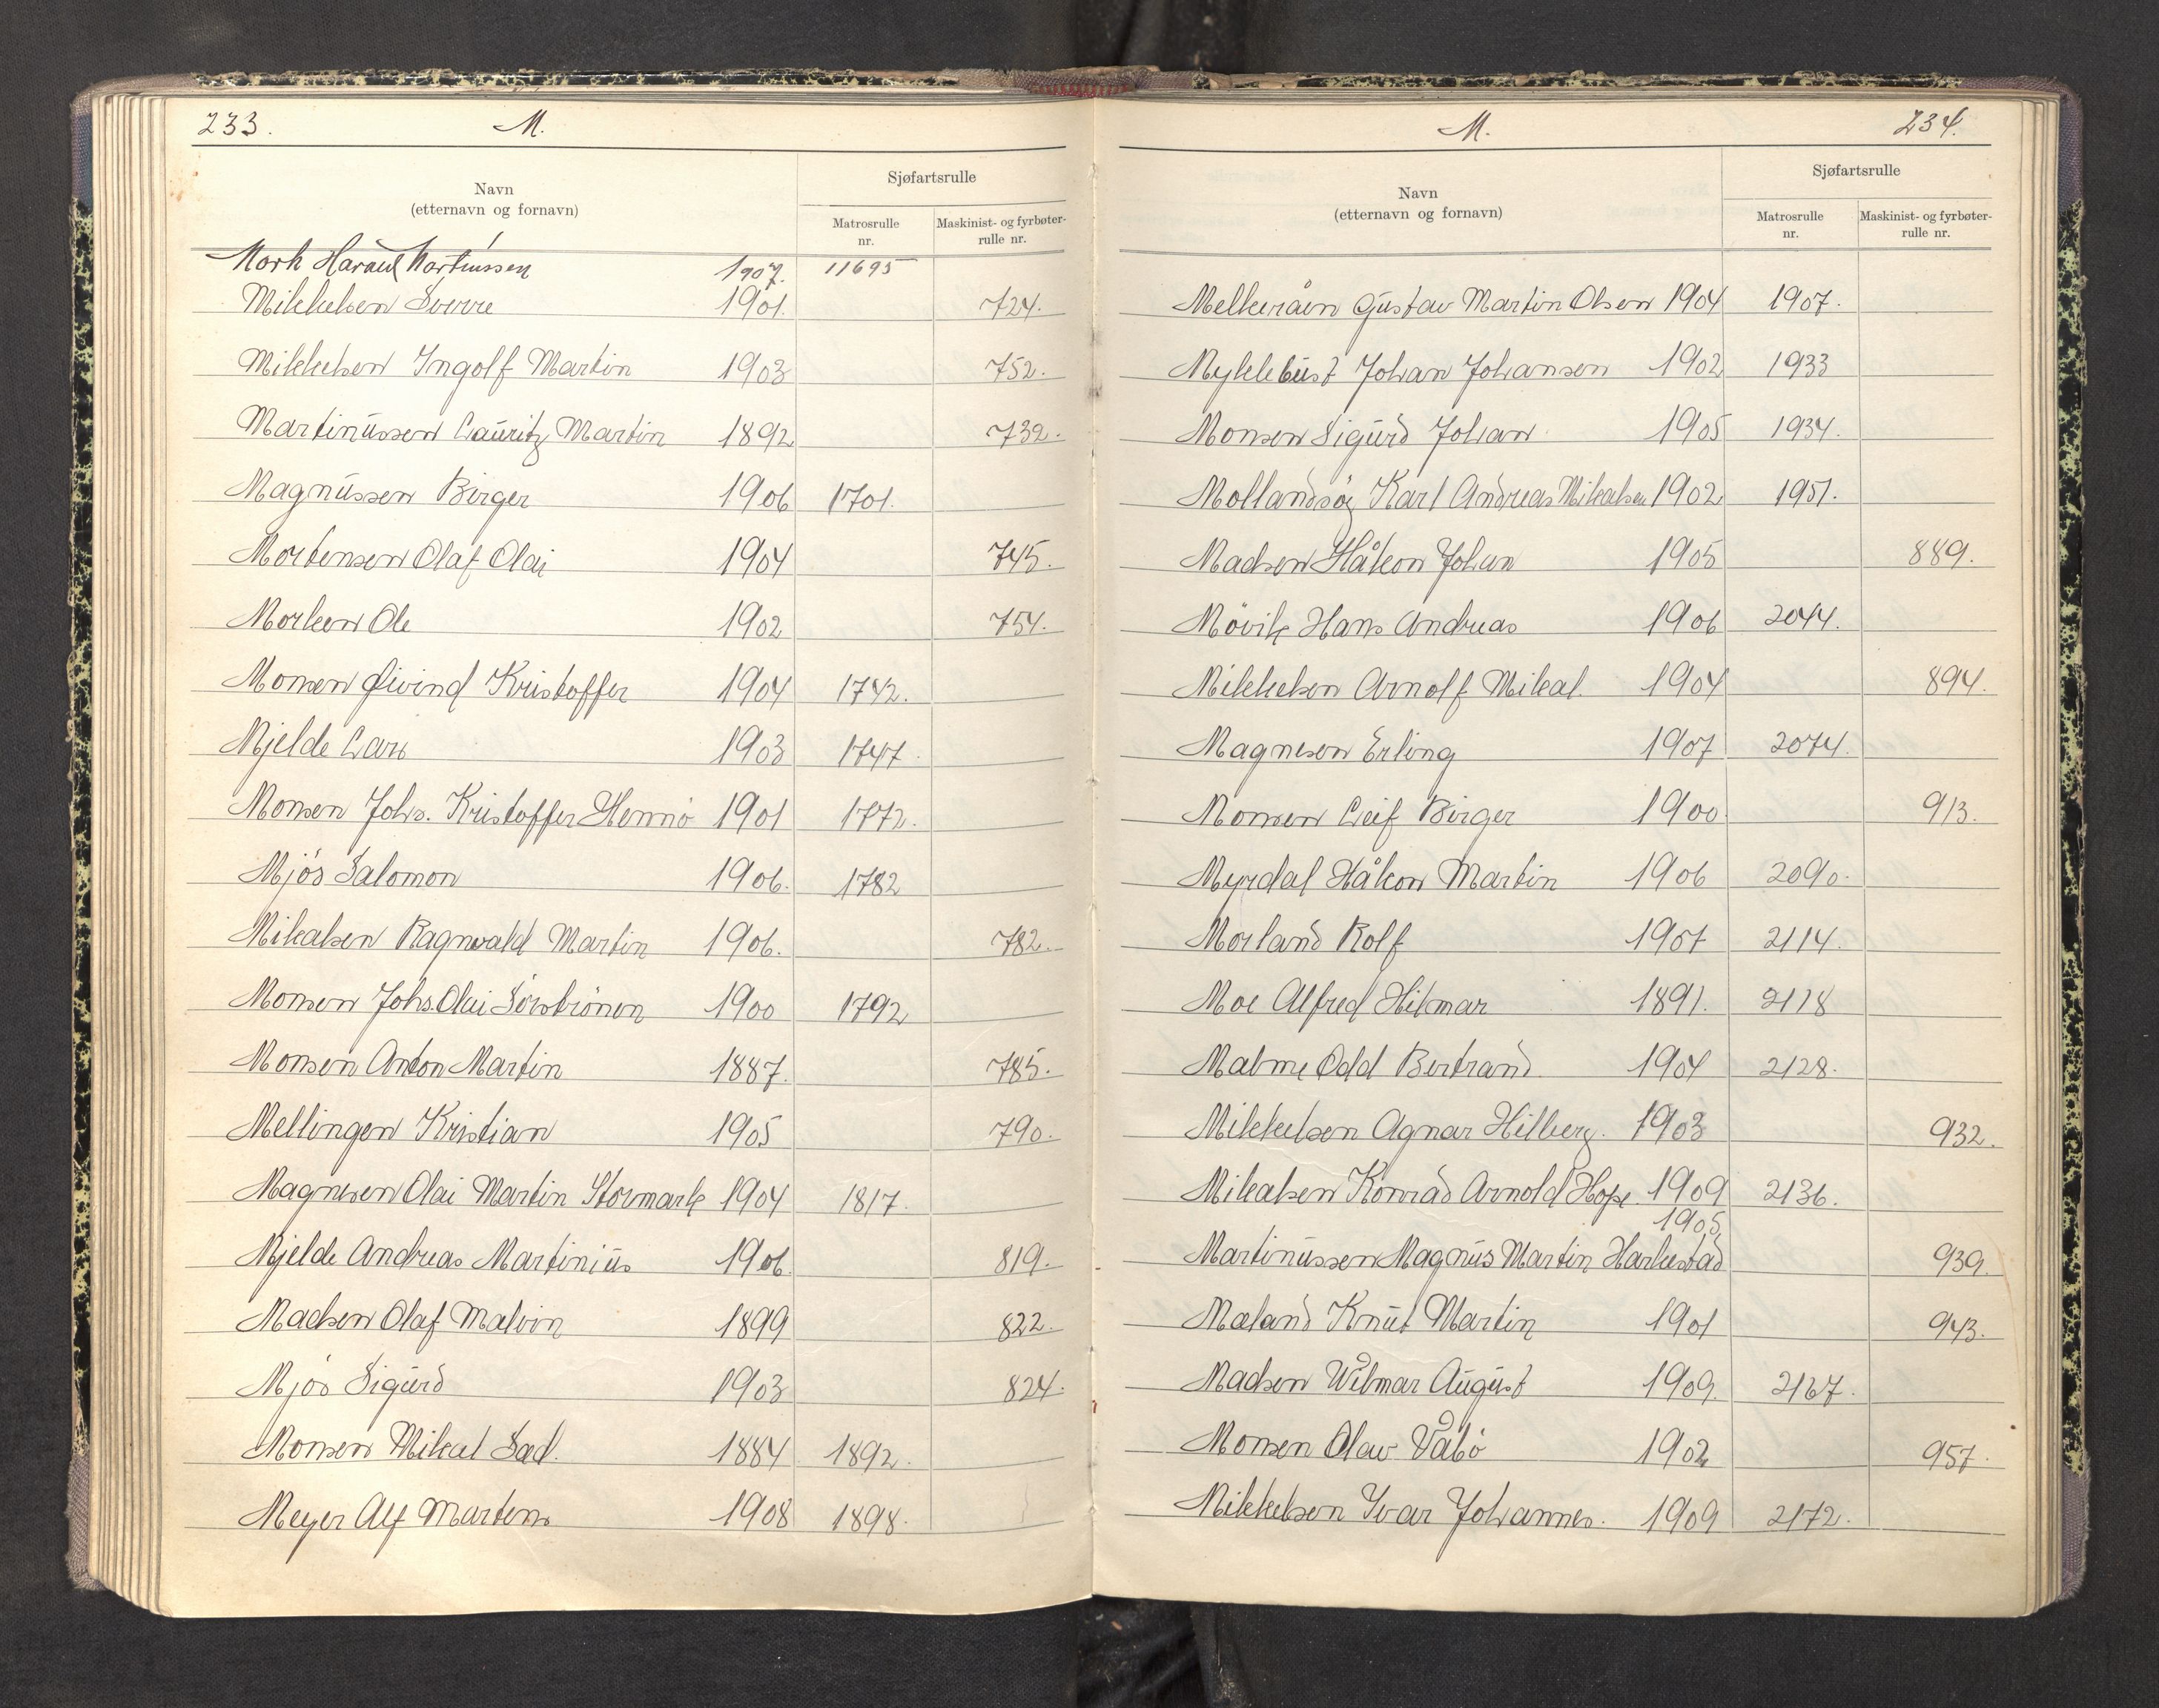 233. M.
Navn
(etternavn og fornavn)
Sjøfartsrulle
Matrosrulle
nr.
Maskinist- og fyrbøter-
rulle nr.
Mork Harald Martinussen 1907. 11695
Mikkelsen Sverre 1901. 724.
Mikkelsen Ingolf Martin 1903 752.
Martinussen Lauritz Martin 1892 732.
Magnussen Birger 1906 1701.
Mortensen Olaf Olai 1904 745.
Morken Ole 1902 754.
Monsen Øivind Kristoffer 1904 1742.
Mjelde Lars 1903 1747.
Monsen Johs. Kristoffer Hennø 1901 1772.
Mjøs Salomon 1906. 1782
Mikalsen Ragnvald Martin 1906. 782.
Monsen Johs. Olai Sørstrønen 1900 1792
Monsen Anton Martin 1887. 785.
Mellingen Kristian 1905 790.
Magnesen Olai Martin Stormark 1904 1817.
Mjelde Andreas Martinius 1906. 819.
Madsen Olaf Malvin 1899 822.
Mjøs Sigurd 1903 824.
Monsen Mikal Sad. 1884 1892.
Meyer Alf Martens 1908 1898.
M. 234.
Navn
(etternavn og fornavn)
Sjøfartsrulle
Matrosrulle
nr.
Maskinist- og fyrbøter-
rulle nr.
Melkeråen Gustav Martin Olsen 1904 1907.
Myklebust Johan Johansen 1902 1933
Monsen Sigurd Johan 1905 1934.
Mollandsøy Karl Andreas Mikalsen 1902 1951.
Madsen Håkon Johan 1905 889.
Møvik Hans Andreas 1906 2044.
Mikkelsen Arnolf Mikal. 1904 894.
Magnesen Erling 1907 2074.
Monsen Leif Birger 1900 913.
Myrdal Håkon Martin 1906 2090.
Morland Rolf 1907 2114.
Moe Alfred Hilmar 1891. 2118
Malme Odd Bertrand. 1904 2128.
Mikkelsen Agnar Hilberg. 1903 932.
Mikalsen Konrad Arnold Hope. 1909 2136.
1905
Martinussen Magnus Martin Harkestad 939.
Mæland Knut Martin 1901 943.
Madsen Wilmar August 1909. 2167.
Monsen Olav Vabø 1902 957.
Mikkelsen Ivar Johannes. 1909 2172.